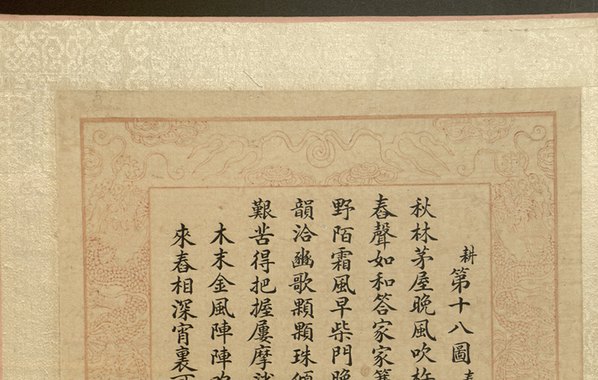 耕第十八圖
秋林茅屋晚風吹
舂聲如和答家家
野陌霜風早柴門晚
韻洽豳歌顆顆珠
艱苦得把握屢摩
木末金風陣陣
來舂相深宵裏